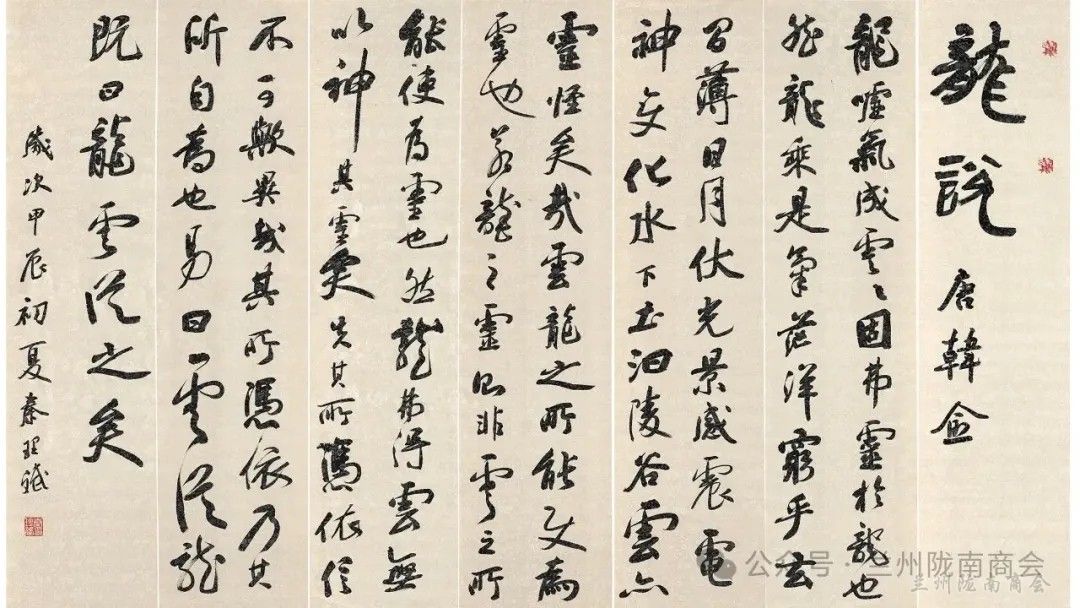 龍說 唐韓愈
龍噓氣成雲〻固弗靈於龍也
然龍乘是氣茫洋窮乎玄
間薄日月伏光景感震電
神變化水下土汩陵谷雲亦
靈怪矣哉雲龍之所能使為
靈也若龍之靈則非雲之所
能使為靈也然龍弗得雲無
以神其靈矣失其所憑依信
不可歟異哉其所憑依乃其
所自為也易曰雲從龍
既曰龍雲從之矣
歲次甲辰初夏秦理斌
公众号·兰州陇南商会
兰州陇南商会